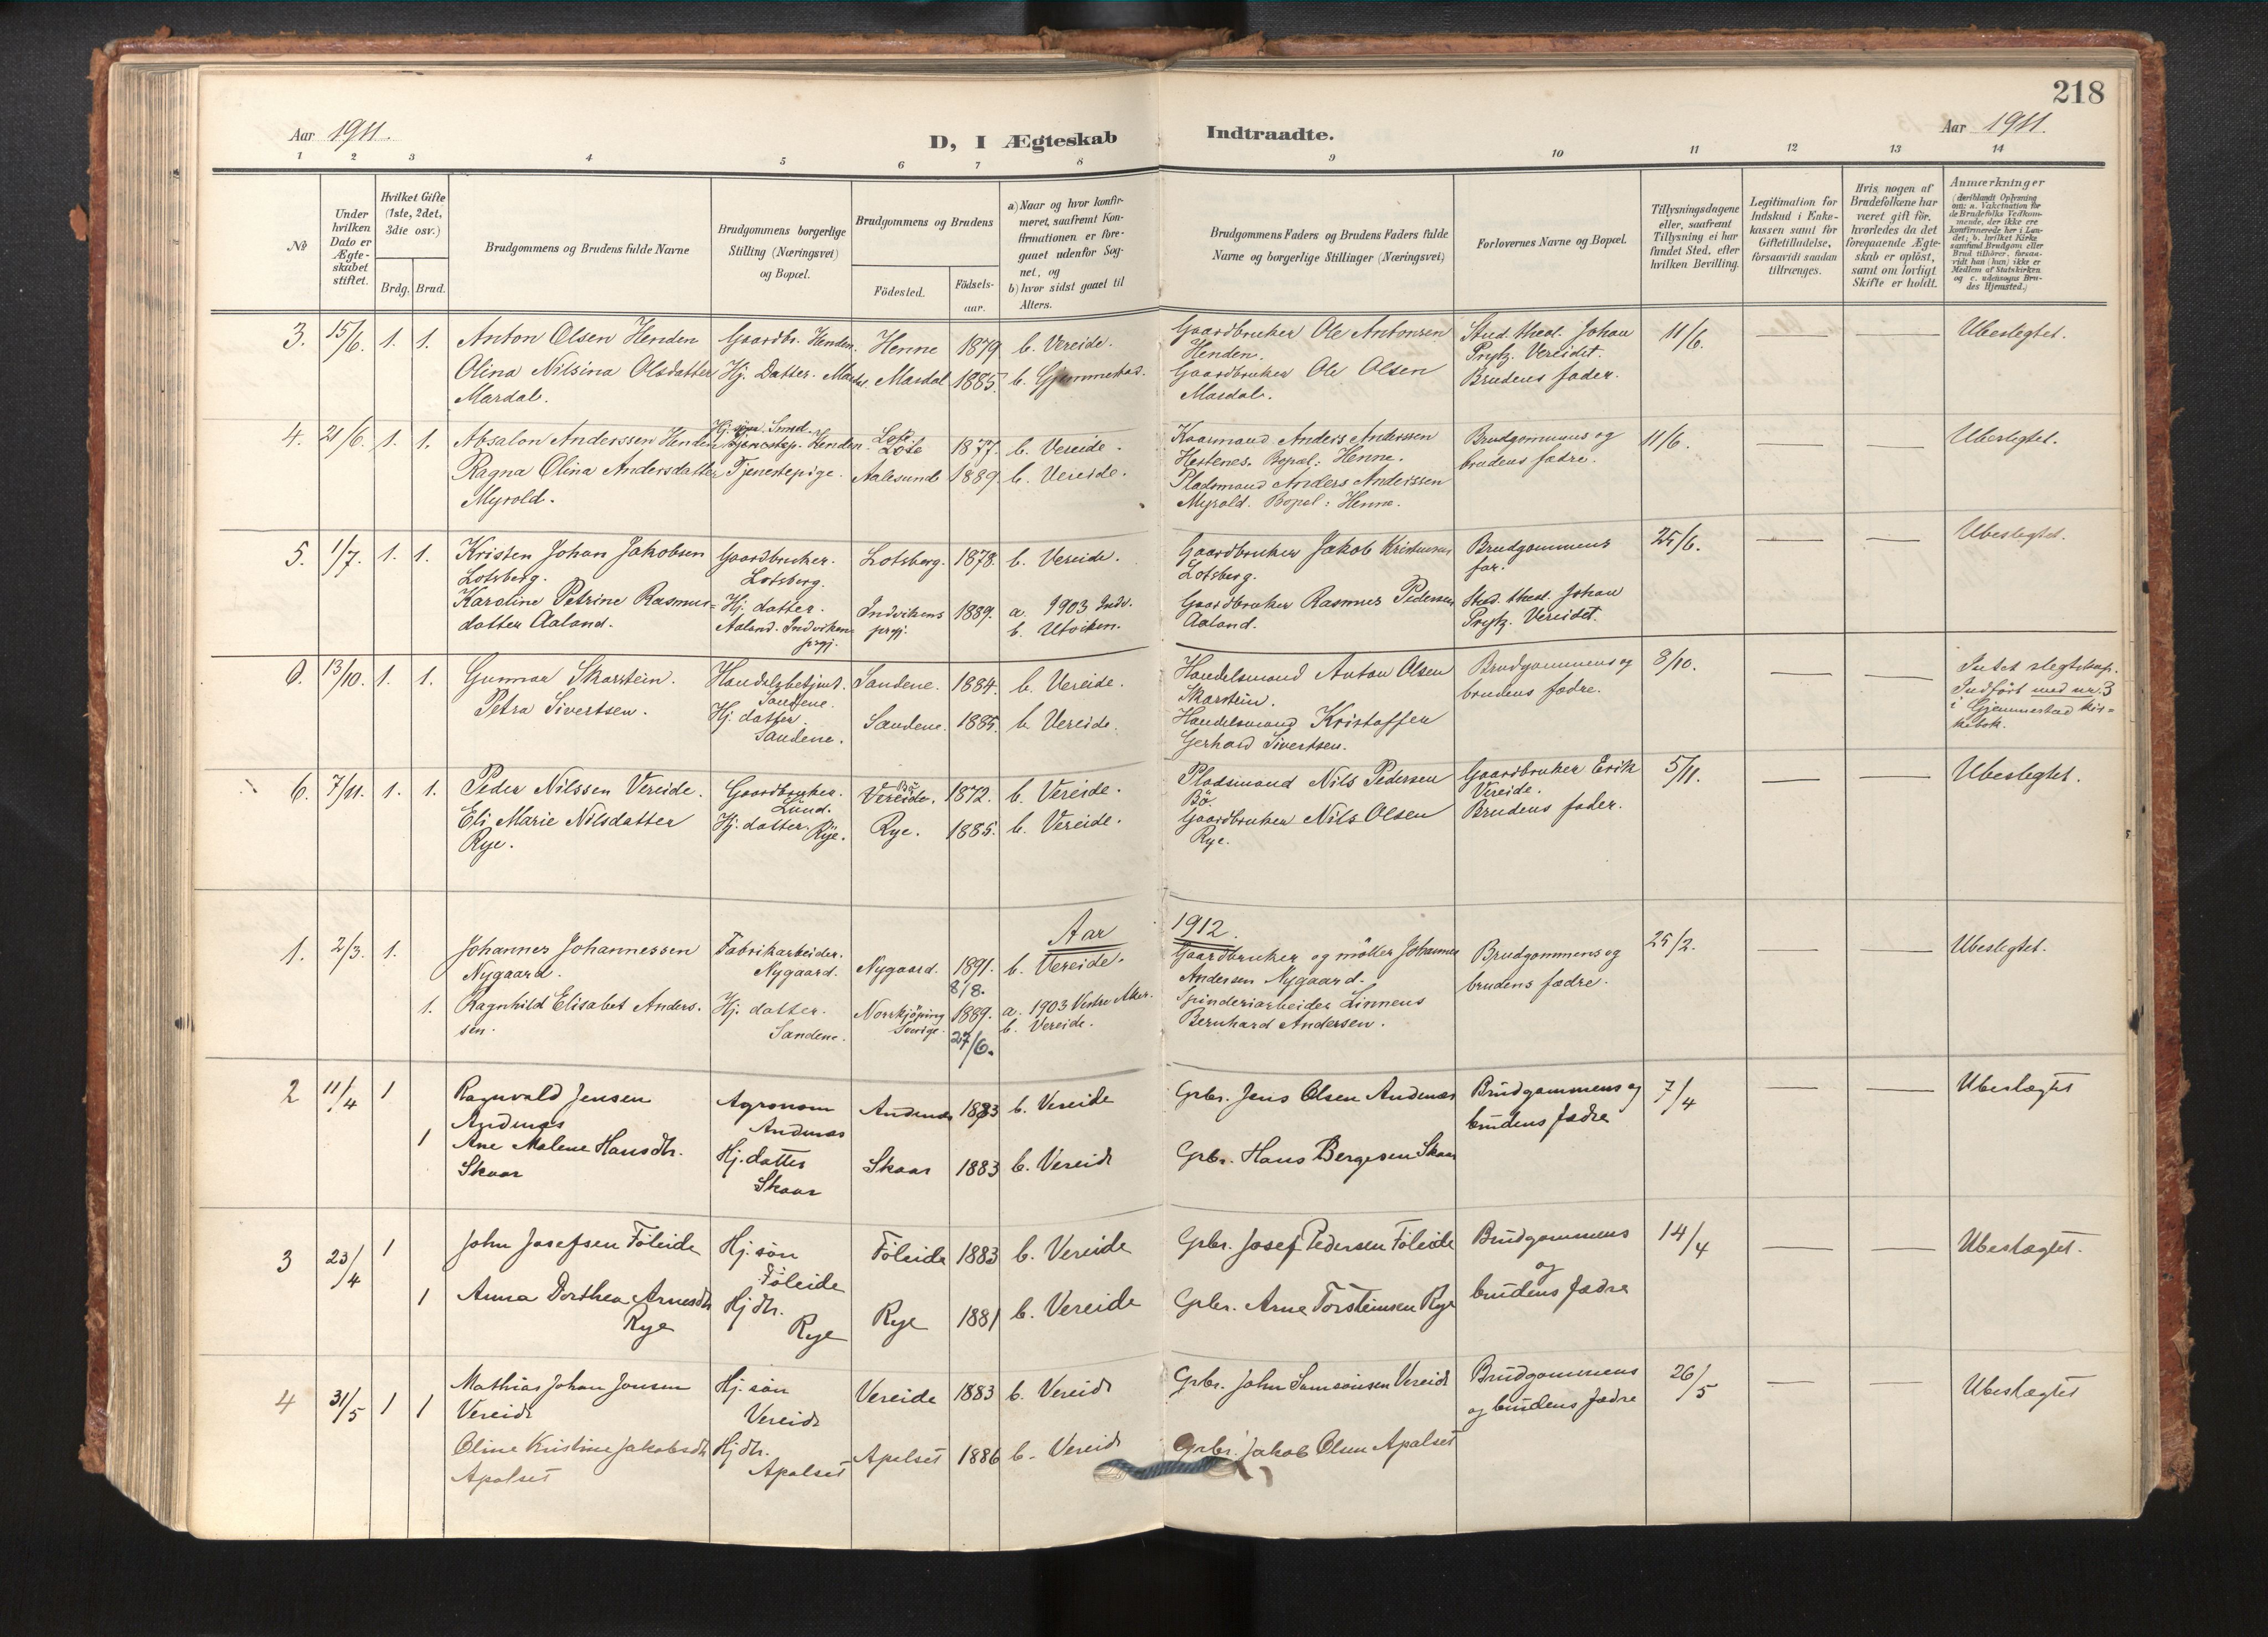 218
Aar 1911.
D, I Ægteskab Indtraadte.
Aar 1911.
1 2 3 4 5 6 7 8 9 10 11 12 13 14
No
Under hvilken Dato er Ægteskabet stiftet.
Hvilket Gifte (1ste, 2det, 3die osv.)
Brdg. Brud.
Brudgommens og Brudens fulde Navne
Brudgommens borgerlige Stilling (Næringsvei) og Bopæl.
Brudgommens og Brudens
Födested.
Födselsaar.
a) Naar og hvor konfirmeret, saafremt Konfirmationen er foregaaet udenfor Sognet, og
b) hvor sidst gaaet til Alters.
Brudgommens Faders og Brudens Faders fulde Navne og borgerlige Stillinger (Næringsvei)
Forlovernes Navne og Bopæl.
Tillysningsdagene eller, saafremt Tillysning ei har fundet Sted, efter hvilken Bevilling.
Legitimation for Indskud i Enkekassen samt for Giftetilladelse, forsaavidt saadan tiltrænges.
Hvis nogen af Brudefolkene har været gift för, hvorledes da det foregaaende Ægteskab er oplöst, samt om lovligt Skifte er holdt.
Anmærkninger
(deriblandt Oplysning om: a. Vakcination for de Brudefolks Vedkommende, der ikke ere konfirmerede her i Landet; b. hvilket Kirkesamfund Brudgom eller Brud tilhörer, forsaavidt han (hun) ikke er Medlem af Statskirken og c. udensogns Brudes Hjemsted.)
3. 15/6. 1. 1. Anton Olsen Henden Gaardbr. Henden. Henne 1879 b. Vereide. Gaardbruker Ole Antonsen Stud. theol. Johan 11/6. Ubeslegtet.
Henden. Prytz. Vereidet.
Olina Nilsina Olsdatter Hj. Datter. Mardal 1885. b. Gjemmestad. Gaardbruker Ole Olsen Brudens fader.
Mardal. Mardal.
4. 21/6. 1. 1. Absalon Anderssen Henden Hj. søn. Smed. Henden. Lote 1877. b. Vereide. Kaarmand Anders Anderssen Brudgommens og 11/6. Ubeslegtet.
Hestenes. Bopæl: Henne. brudens fædre.
Ragna Olina Andersdatter Tjenestepige. Aalesund 1889. b. Vereide. Pladsmand Anders Anderssen
Myrold. Myrold. Bopæl: Henne.
5. 1/7. 1. 1. Kristen Johan Jakobsen Gaardbruker. Lotsberg. 1878. b. Vereide. Gaardbruker Jakob Kristensen Brudgommens 25/6. Ubeslegtet.
Lotsberg. Lotsberg. Lotsberg. far.
Karoline Petrine Rasmus= Hj. datter. Indvikens 1889. a. 1903 Indv. Gaardbruker Rasmus Pedersen Stud. theol. Johan
datter Aaland. Aaland. Indvikens prgj. prgj. b. Utviken. Aaland. Prytz. Vereidet.
0. 13/10. 1. 1. Gunnar Skarstein. Handelsbetjent. Sandene. 1884. b. Vereide. Handelsmand Anton Olsen Brudgommens og 8/10. Intet slegtskap.
Sandene. Skarstein. brudens fædre. Indført med nr. 3
Petra Sivertsen. Hj. datter. Sandene. 1885. b. Vereide. Handelsmand Kristoffer i Gjemmestad kir=
Sandene. Gerhard Sivertsen. kebok.
6. 7/11. 1. 1. Peder Nilssen Vereide. Gaardbruker. Bö Vereide. 1872. b. Vereide. Pladsmand Nils Pedersen Gaardbruker Erik 5/11. Ubeslegtet.
Lund. Bö. Vereide.
Eli Marie Nilsdatter Hj. datter. Rye. Rye. 1885. b. Vereide. Gaardbruker Nils Olsen Brudens fader.
Rye. Rye.
Aar 1912.
1. 2/3. 1. Johannes Johannessen Fabrikarbeider. Nygaard. 1891. b. Vereide. Gaardbruker og møller Johannes Brudgommens og 25/2. Ubeslegtet.
Nygaard. Nygaard. 8/8. Andersen Nygaard. brudens fædre.
1. Ragnhild Elisabet Anders. Hj. datter. Norrkjöping 1889. a. 1903 Vestre Aker. Spinderiarbeider Linneus
sen. Sandene. Sverige. 27/6. b. Vereide. Bernhard Andersen.
2 11/4 1 Ragnvald Jensen Agronom Andenæs 1883 b. Vereide Grbr. Jens Olsen Andenæs Brudgommens og 7/4 Ubeslægtet
Andenæs Andenæs brudens fædre
1 Ane Malene Hansdtr. Hj. datter Skaar 1883 b. Vereide Grbr. Hans Bergesen Skaar
Skaar Skaar
3 23/4 1 John Josefsen Föleide Hj. sön Föleide 1883 b. Vereide Grbr. Josef Pedersen Föleide Brudgommens 14/4 Ubeslægtet.
Föleide og
1 Anna Dorthea Arnesdtr Hj dtr. Rye 1881 b. Vereide Grbr. Arne Torsteinsen Rye brudens fædre
Rye Rye
4 31/5 1 1 Mathias Johan Jonsen Hj. sön Vereide 1883 b. Vereide Grbr. John Samsonsen Vereide Brudgommens 26/5 Ubeslægtet
Vereide Vereide og brudens fædre
Oline Kristine Jakobsdtr Hj dtr. Apalset 1886 b. Vereide Grbr. Jakob Olsen Apalset
Apalset Apalset